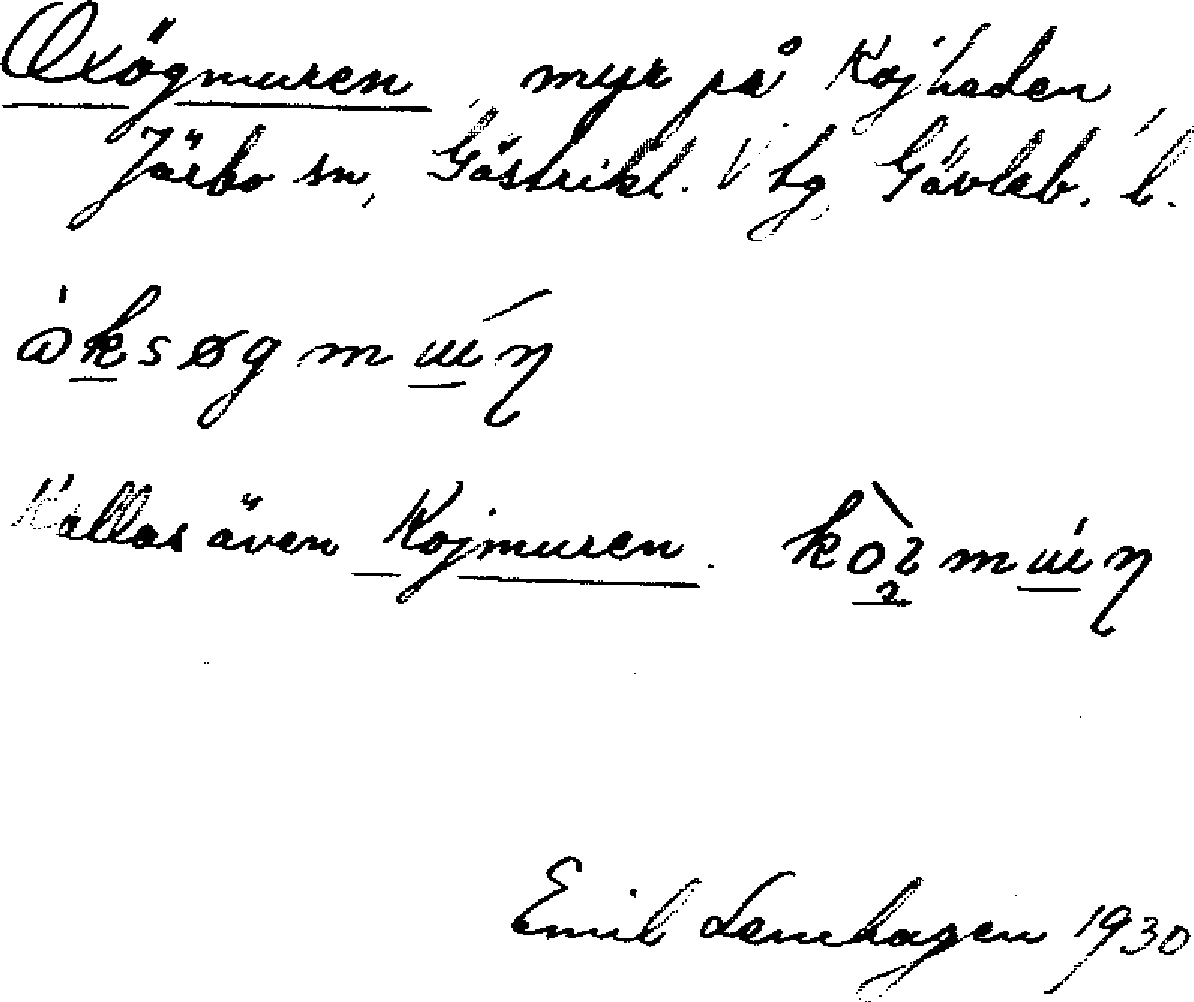 Oxögmuren, myr på Kojheden,
Järbo sn, Gästrikl. V hg Gävleb. l.
òksøgmɯ́ŋ
Kallas även Kojmuren.
Emil Lennhagen 1930